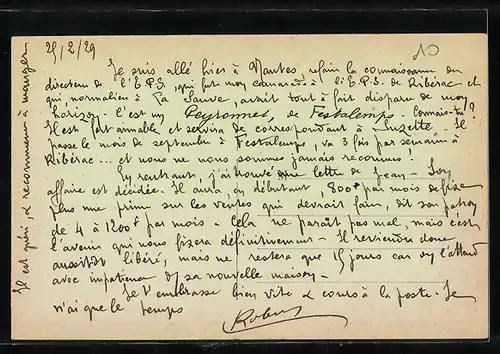 25/2/29
10
Je suis allé hier à Nantes refaire la connaissance du
directeur de l'E.P.S., qui fut mon camarade à l'E.P.S. de Ribérac et
qui, normalien à La Sauve, avait tout à fait disparu de mon
horizon. C'est un Peyronnet, de Festalemps. Connais-tu ?
Il est fort aimable et servira de correspondant à Suzette. Il
passe le mois de septembre à Festalemps, va 3 fois par semaine à
Ribérac... et nous ne nous sommes jamais reconnus !
En rentrant, j'ai trouvé une lettre de Jean. Son
affaire est décidée. Il aura, en débutant, 800f par mois de fixe
plus une prime sur les ventes qui devrait faire, dit son patron
de 4 à 1200f par mois. Cela ne paraît pas mal, mais c'est
l'avenir qui nous fixera définitivement. Il reviendra donc
aussitôt libéré, mais ne restera que 15 jours car on l'attend
avec impatience dans sa nouvelle maison.
Je t'embrasse bien vite & cours à la poste. Je
n'ai que le temps
Robert
Il est guéri, & recommence à manger